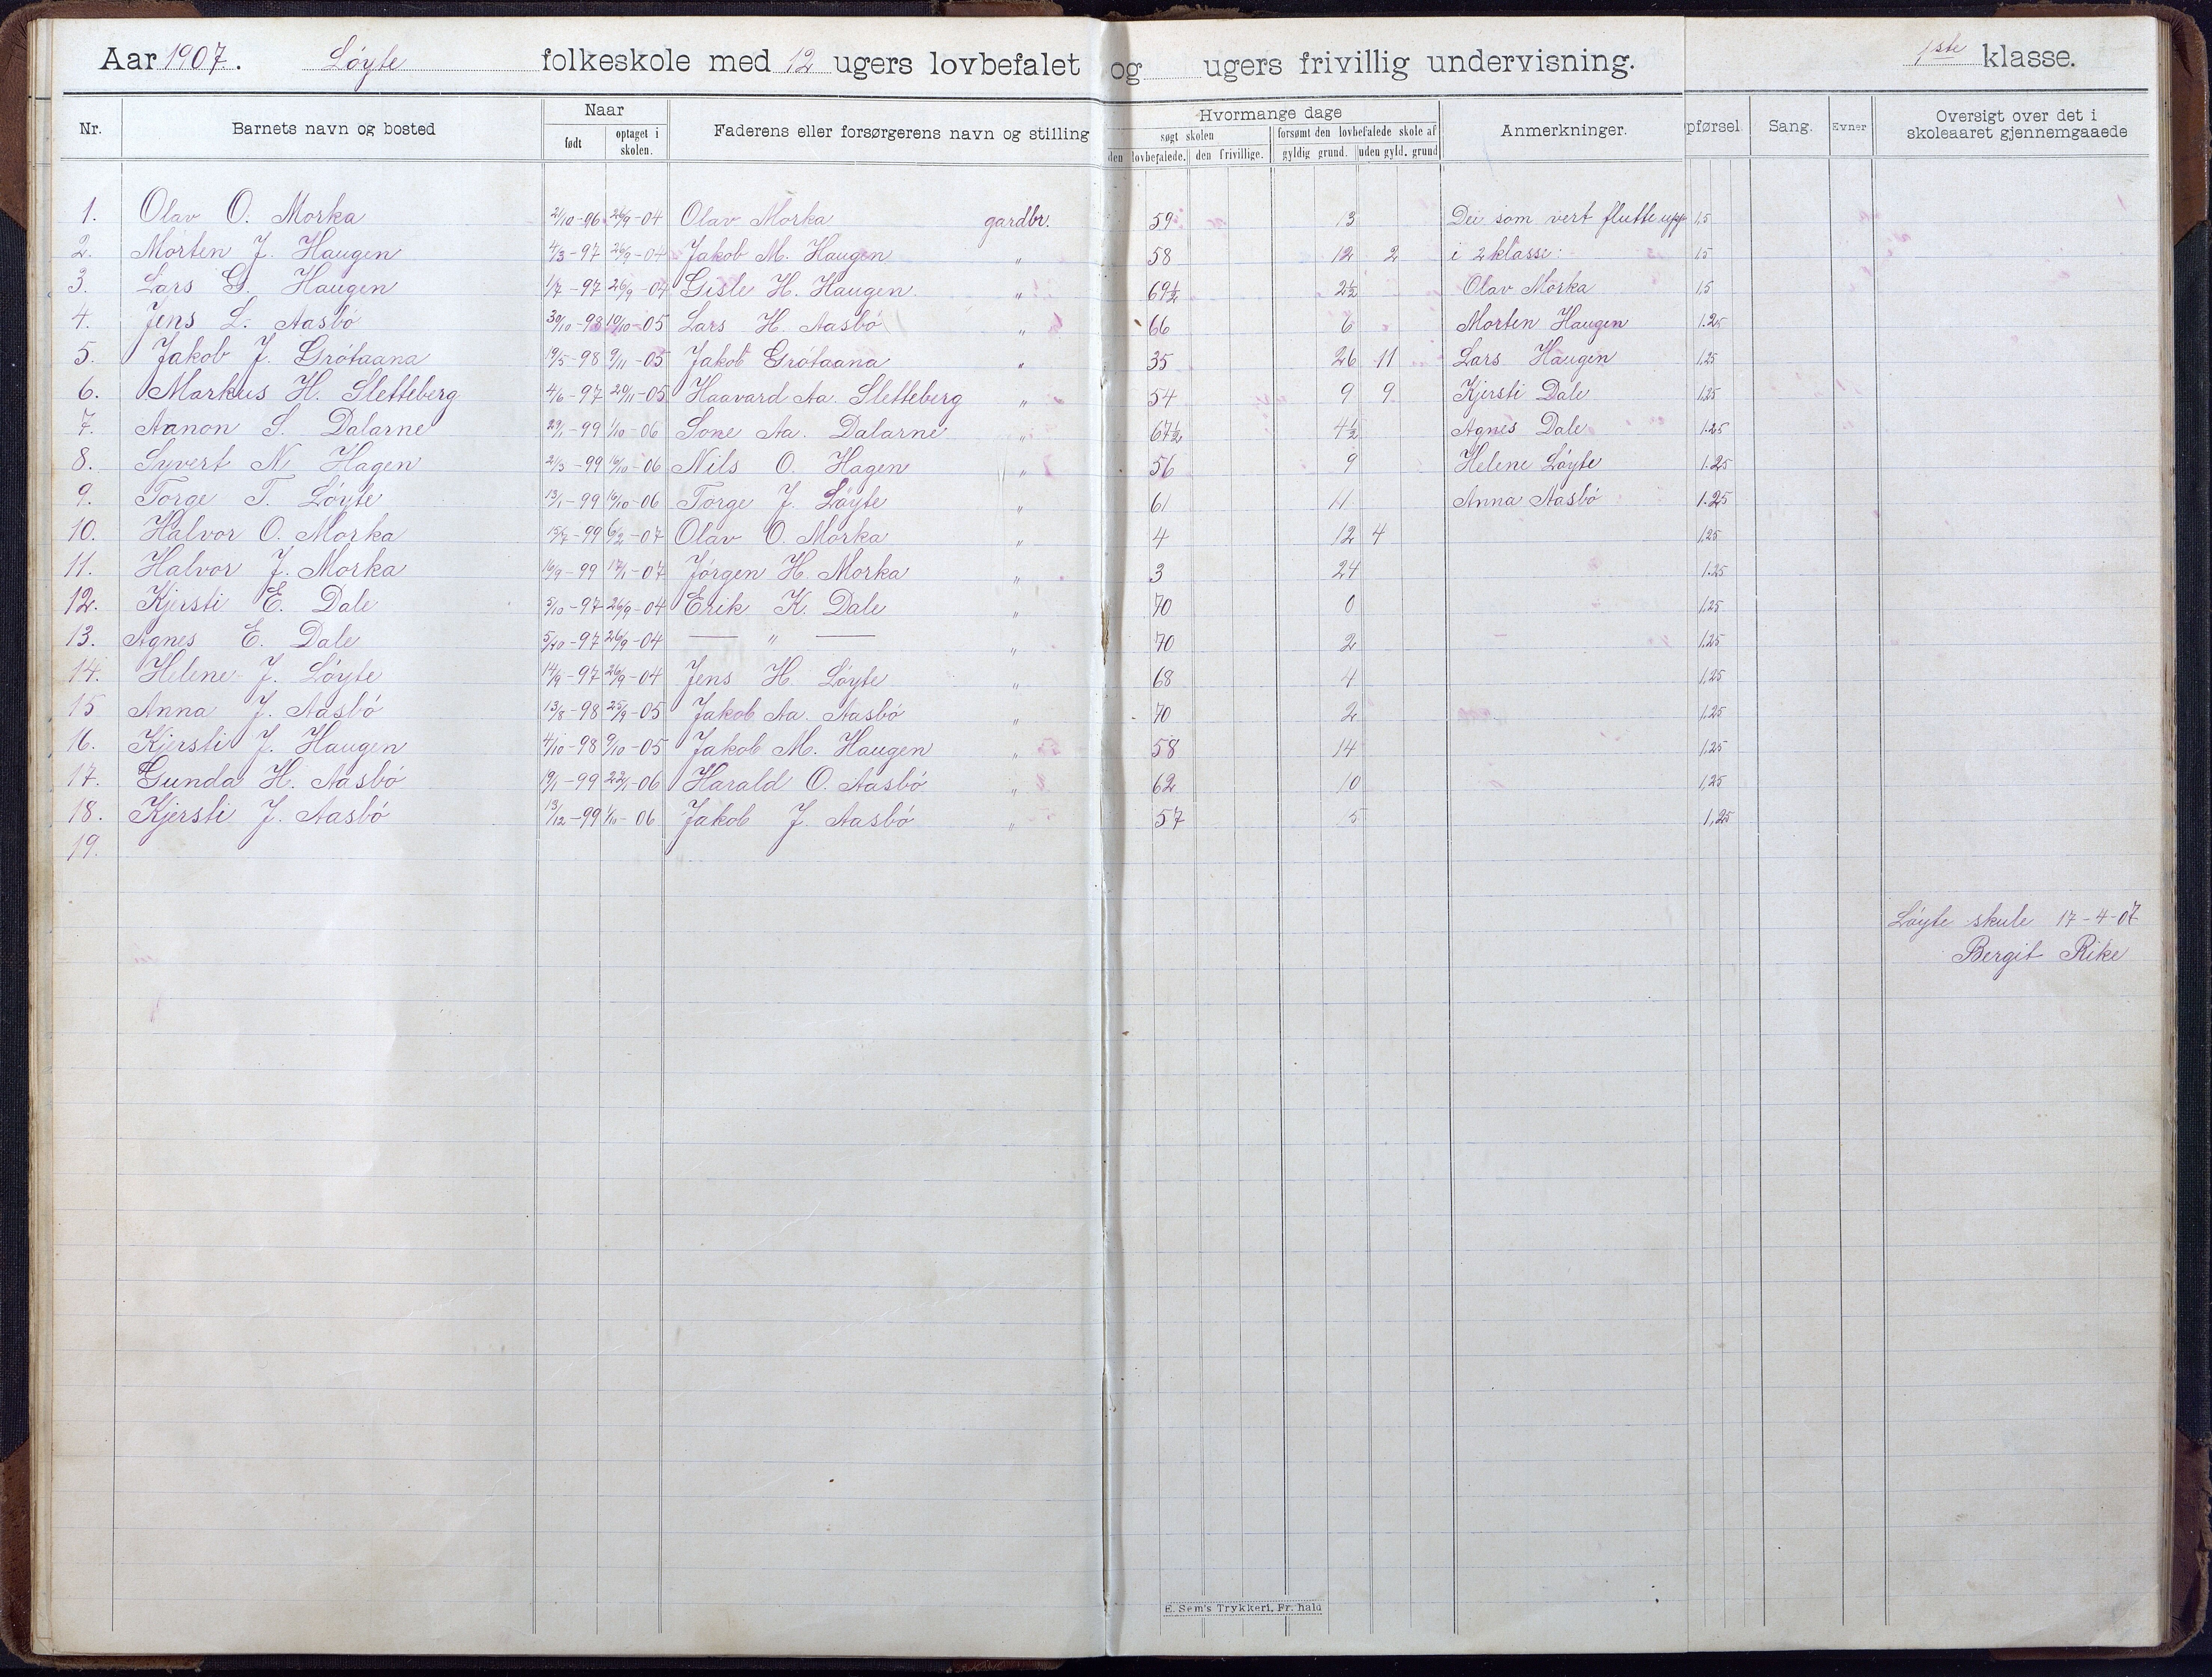 Aar 1907. Löyte folkeskole med 12 ugers lovbefalet og ugers frivillig undervisning. 1ste klasse.
Nr. Barnets navn og bosted Naar født optaget i skolen. Faderens eller forsørgerens navn og stilling Hvormange dage søgt skolen den lovbefalede. den frivillige. forsømt den lovbefalede skole af gyldig grund. uden gyld. grund Anmerkninger. pførsel. Sang. Evner Oversigt over det i skoleaaret gjennemgaaede
1. Olav O. Morka 2/10-96 26/9-04 Olav Morka gardbr. 59 13 Dei som vert flutte upp 1,5
2. Morten J. Haugen 4/3-97 26/9-04 Jakob M. Haugen " 58 12 2 i 2 klasse: 1,5
3. Lars G. Haugen 1/7-97 26/9-04 Gisle H. Haugen. " 69½ 2½ Olav Morka 1,5
4. Jens L. Aasbö 30/10-98 10/10-05 Lars H. Aasbö " 66 6 Morten Haugen 1.25
5. Jakob J. Grötaana 19/5-98 9/11-05 Jakob Grötaana " 35 26 11 Lars Haugen 1,25
6. Markus H. Sletteberg 4/6-97 20/11-05 Haavard Aa. Sletteberg " 54 9 9 Kjersti Dale 1,25
7. Aanon S. Dalarne 29/1-99 1/10-06 Sone Aa. Dalarne " 67½ 4½ Agnes Dale 1.25
8. Syvert N. Hagen 2/3-99 16/10-06 Nils O. Hagen " 56 9 Helene Löyte 1.25
9. Torge T. Löyte 13/1-99 16/10-06 Torge J. Löyte " 61 11 Anna Aasbö 1.25
10. Halvor O. Morka 15/7-99 6/2-07 Olav O. Morka " 4 12 4 1,25
11. Halvor J. Morka 16/9-99 17/1-07 Jörgen H. Morka " 3 24 1.25
12. Kjersti E. Dale 5/10-97 26/9-04 Erik K. Dale " 70 0 1,25
13. Agnes E. Dale 5/10-97 26/9-04 — " — " 70 2 1,25
14. Helene J. Löyte 14/9-97 26/9-04 Jens H. Löyte " 68 4 1,25
15 Anna J. Aasbö 13/8-98 25/9-05 Jakob Aa. Aasbö " 70 2 1,25
16. Kjersti J. Haugen 4/10-98 9/10-05 Jakob M. Haugen " 58 14 1,25
17. Gunda H. Aasbö 19/1-99 22/1-06 Harald O. Aasbö " 62 10 1,25
18. Kjersti J. Aasbö 13/12-99 1/10-06 Jakob J. Aasbö " 57 5 1,25
19.
Löyte skule 17-4-07
Bergit Rike
E. Sem's Trykkeri, Fr.hald